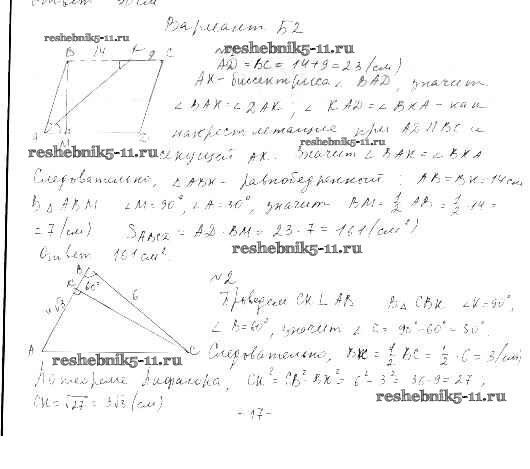 ответ 30 см
Вариант Б2
reshebnik5-11.ru
B 14 K 9 C
reshebnik5-11.ru
AD = BC = 14+9 = 23 (см)
AK - биссектриса ∠ BAD, значит
∠ BAK = ∠ DAK ; ∠ KAD = ∠ BKA - как
накрест лежащие при AD || BC и
A M
reshebnik5-11.ru
reshebnik5-11.ru
секущей AK. Значит ∠ BAK = ∠ BKA
Следовательно, △ ABK - равнобедренный ; AB = BK = 14 см
В △ ABM ∠M = 90°, ∠A = 30°, значит BM = 1/2 AB = 1/2 · 14 =
= 7 (см) AD · BM = 23 · 7 = 161 (см²)
reshebnik5-11.ru
Ответ 161 см².
B
N2
K 60° 6
4√3
Проведем CK ⊥ AB В △ CBK ∠K = 90°,
∠ B = 60°, значит ∠ C = 90° - 60° = 30°.
A C
reshebnik5-11.ru
Следовательно, BK = 1/2 BC = 1/2 · 6 = 3 (см)
По теореме Пифагора, CK² = CB² - BK² = 6² - 3² = 36 - 9 = 27 ;
CK = √27 = 3√3 (см)
reshebnik5-11.ru
- 17 -